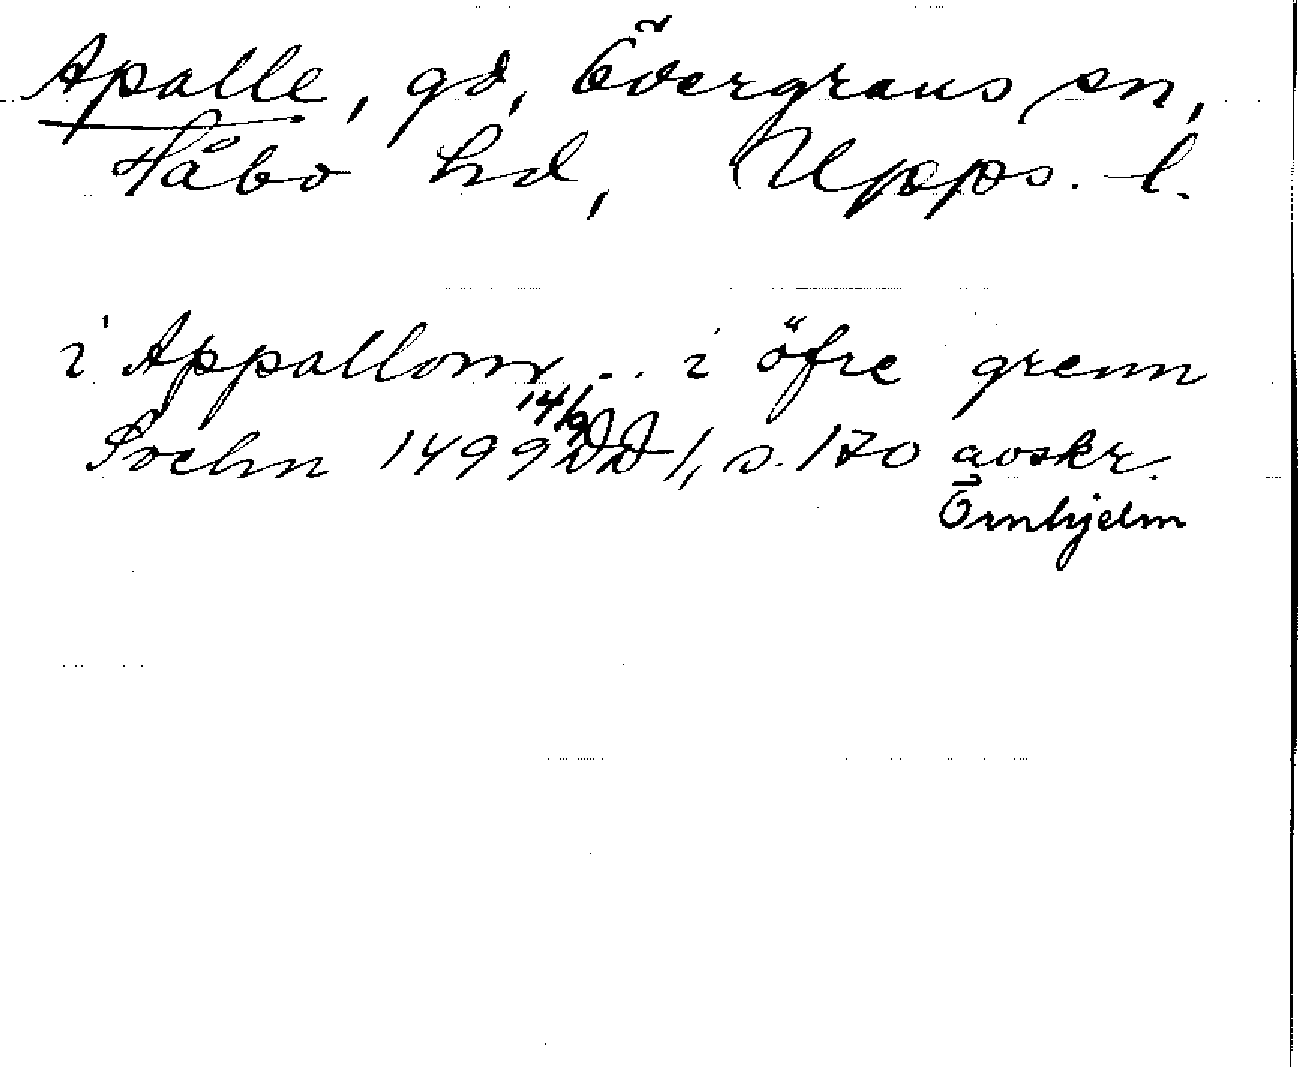 Apalle, gd, Övergrans sn,
Håbo hd, Upps. l.
i Appallom ... i öfre grenn
Sochn 1499 14/9 DD 1, s. 170 avskr.
Örnhjelm